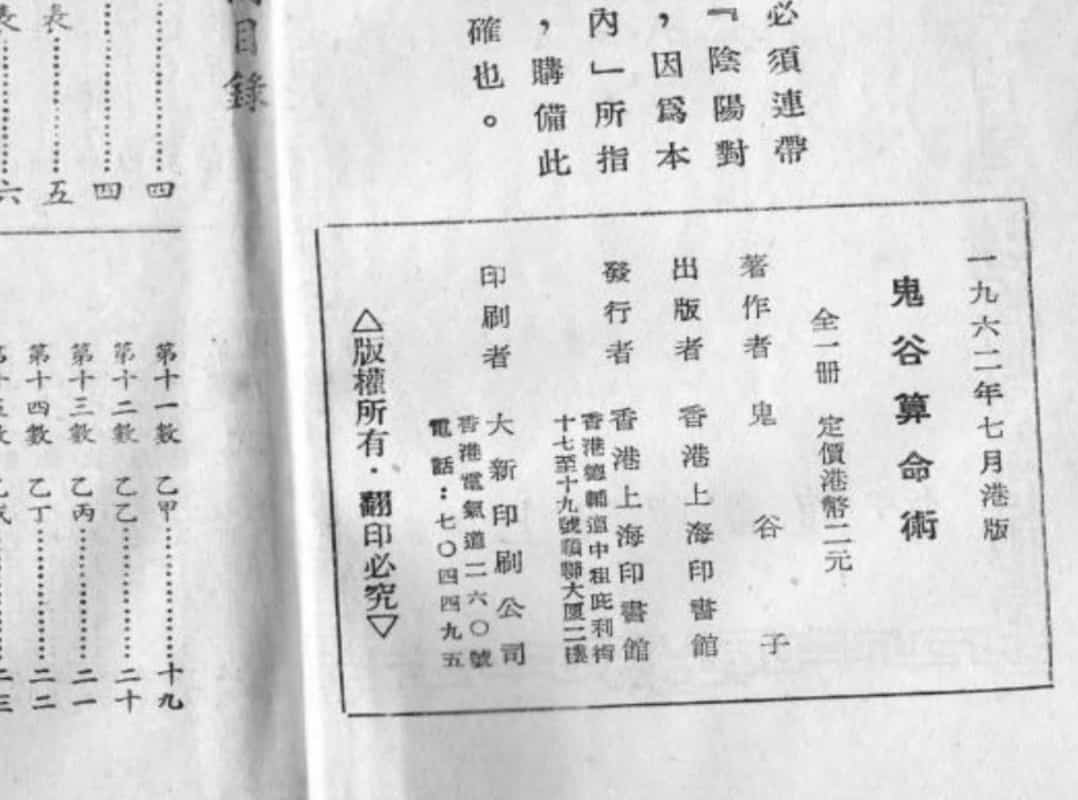 必須連帶
『陰陽對
，因爲本
內」所指
，購備此
確也。
一九六二年七月港版
鬼谷算命術
全一册 定價港幣二元
著作者 鬼谷子
出版者 香港上海印書館
發行者 香港上海印書館
香港德輔道中租庇利街
十七至十九號順聯大廈二樓
印刷者 大新印刷公司
香港電氣道二六〇號
電話：七〇四四九五
△版權所有·翻印必究▽
目錄
四
四
表 五
表 六
第十一數 乙甲 十九
第十二數 乙乙 二十
第十三數 乙丙 二一
第十四數 乙丁 二二
第十五數 乙戊 二三